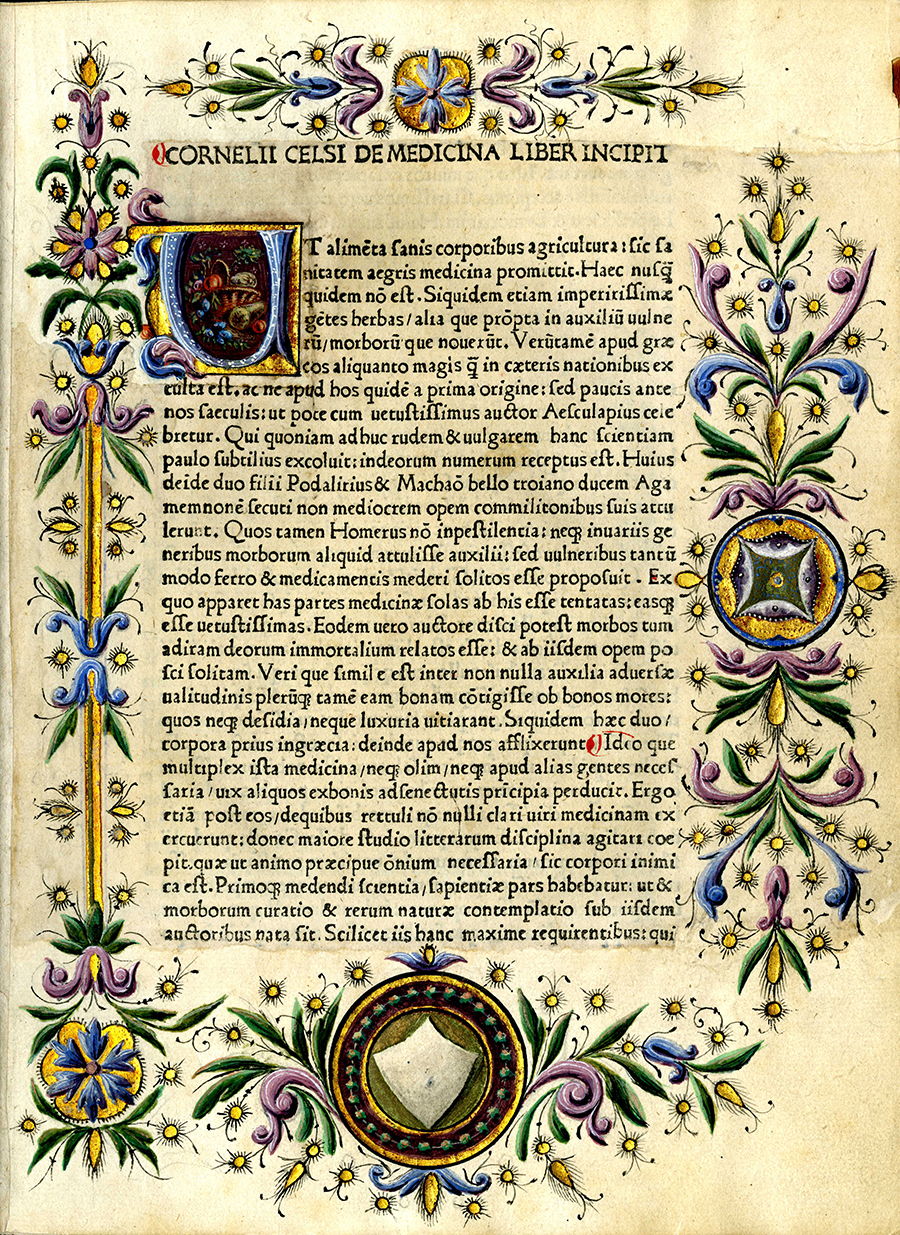 CORNELII CELSI DE MEDICINA LIBER INCIPIT
UT alimēta sanis corporibus agricultura: sic sa
nitatem aegris medicina promittit. Haec nusq̄
quidem nō est. Siquidem etiam imperitissimæ
gētes herbas/alia que prōpta in auxiliū uulne
rū/morborū que nouerūt. Verūtamē apud græ
cos aliquanto magis q̄ in cæteris nationibus ex
culta est. ac ne apud hos quidē a prima origine: sed paucis ante
nos saeculis: ut pote cum uetustissimus auctor Aesculapius cele
bretur. Qui quoniam adhuc rudem & uulgarem hanc scientiam
paulo subtilius excoluit: indeorum numerum receptus est. Huius
deide duo filii Podalirius & Machaō bello troiano ducem Aga
memnonē secuti non mediocrem opem commilitonibus suis attu
lerunt. Quos tamen Homerus nō inpestilentia: neqꝫ inuariis ge
neribus morborum aliquid attulisse auxilii: sed uulneribus tantū
modo ferro & medicamentis mederi solitos esse proposuit. Ex
quo apparet has partes medicinæ solas ab his esse tentatas: easqꝫ
esse uetustissimas. Eodem uero auctore disci potest morbos tum
adiram deorum immortalium relatos esse: & ab iisdem opem po
sci solitam. Veri que simile est inter non nulla auxilia aduersæ
ualitudinis plerūqꝫ tamē eam bonam cōtigisse ob bonos mores:
quos neqꝫ desidia/neque luxuria uitiarant. Siquidem hæc duo/
corpora prius ingræcia: deinde apud nos afflixerunt Ideo que
multiplex ista medicina/neqꝫ olim/neqꝫ apud alias gentes neces
saria/uix aliquos exbonis adsenectutis pricipia perducit. Ergo
etiā post eos/dequibus rettuli nō nulli clari uiri medicinam ex
ercuerunt: donec maiore studio litterarum disciplina agitari coe
pit. quæ ut animo præcipue ōnium necessaria/sic corpori inimi
ca est. Primoqꝫ medendi scientia/sapientiæ pars habebatur: ut &
morborum curatio & rerum naturæ contemplatio sub iisdem
auctoribus nata sit. Scilicet iis hanc maxime requirentibus: qui